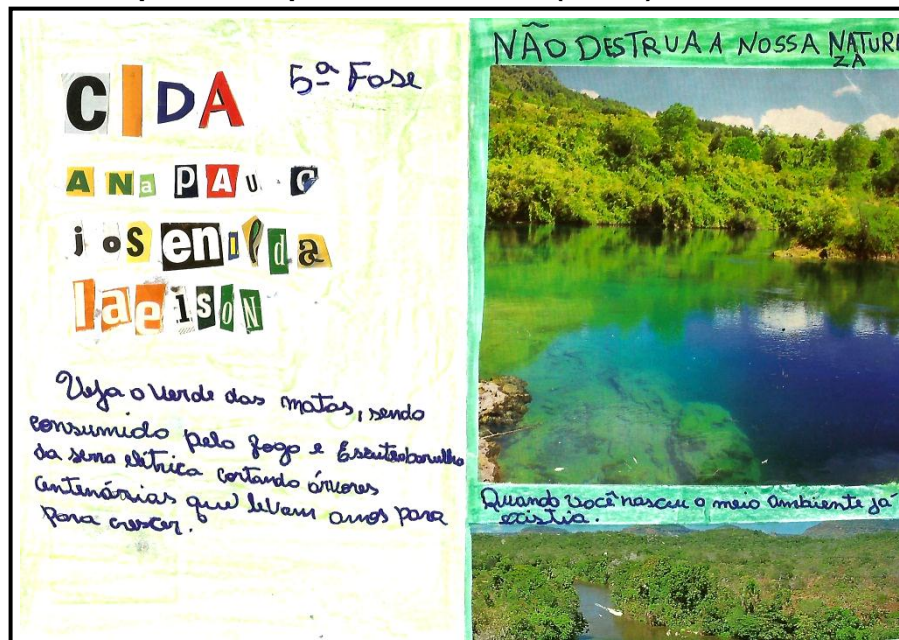 CIDA
5ª Fase
ANa PAU
josenilda
laeison
Veja o verde das matas, sendo
consumido pelo fogo e Escute o barulho
da serra elétrica cortando árvores
centenárias que levam anos para
para crescer.
NÃO DESTRUA A NOSSA NATURE
ZA
Quando você nasceu o meio ambiente já
existia.